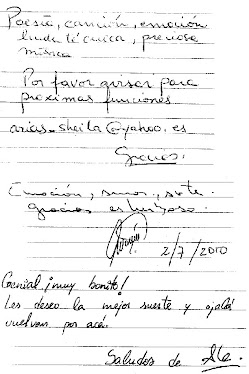 Poesía, canción, emoción
linda técnica, preciosa
música
Por favor avisar para
próximas funciones
arias_sheila@yahoo.es
Gracias.
Emoción, amor, arte.
gracias es hermoso.
2/7/2010
Genial ¡muy bonito!
Les deseo la mejor suerte y ojalá
vuelvan por acá.
Saludos de Ale.